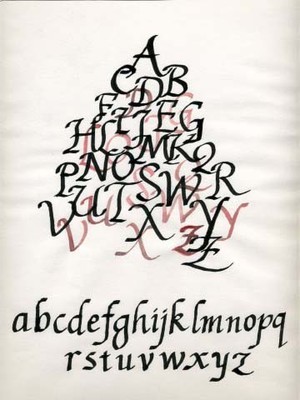 A
CDB
FIEG
HLJMKQ
PNO
VUTSWR
XYZ
abcdefghijklmnopq
rstuvwxyz